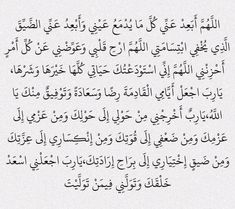 اللَّهُمَّ أَبْعِدْ عَنِّي كُلَّ مَا يُدْمِعُ عَيْنِي وَأَبْعِدْ عَنِّي الضِّيقَ
الَّذِي يُخْفِي ابْتِسَامَتِي اللَّهُمَّ ارْحْ قَلْبِي وَعَوِّضْنِي عَنْ كُلِّ أَمْرٍ
أَحْزَنَنِي اللَّهُمَّ إِنِّي اسْتَوْدَعْتُكَ حَيَاتِي كُلَّهَا خَيْرَهَا وَشَرَّهَا،
يَارَبْ اجْعَلْ أَيَّامِي الْقَادِمَةَ رِضًا وَسَعَادَةً وَتَوْفِيقٌ مِنْكَ يَا
اللَّه،يَارَبُّ أَخْرِجْنِي مِنْ حَوْلِي إِلَى حَوْلِكَ وَمِنْ عَزْمِي إِلَى
عَزْمِكَ وَمِنْ ضَعْفِي إِلَى قُوَّتِكَ وَمِنْ إِنْكِسَارِي إِلَى عِزَّتِكَ
وَمِنْ ضَيقِ إِخْتِيَارِي إِلَى بَرَاحِ إِرَادَتِكَ،يَارَبِ اجْعَلْنِي اسْعَدُ
خَلْقِكَ وَتَوَلَّنِي فِيمَنْ تَوَلَّيْتَ